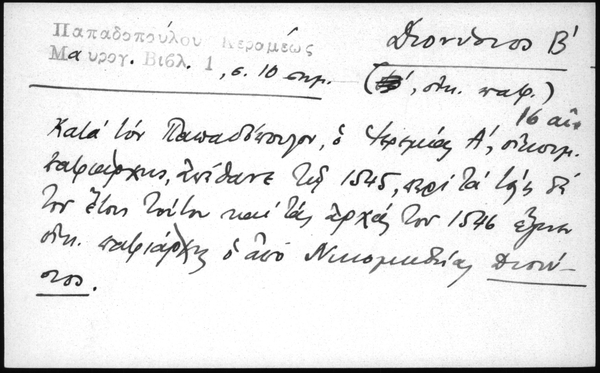 Παπαδοπούλου Κεραμέως
Μαυρογ. Βιβλ. 1, σ. 10 σημ.
Διονύσιος Β΄
(οἰκ. πατρ.)
16 αἰ.
Κατά τόν Παπαδόπουλον, ὁ Ἱερεμίας Α΄, οἰκουμ.
πατριάρχης, ἀπέθανε τῷ 1545, περί τά τέλη δέ
τοῦ ἔτους τούτου καί τάς ἀρχάς τοῦ 1546 ἐγένετο
οἰκ. πατριάρχης ὁ ἀπό Νικομηδείας Διονύ-
σιος.